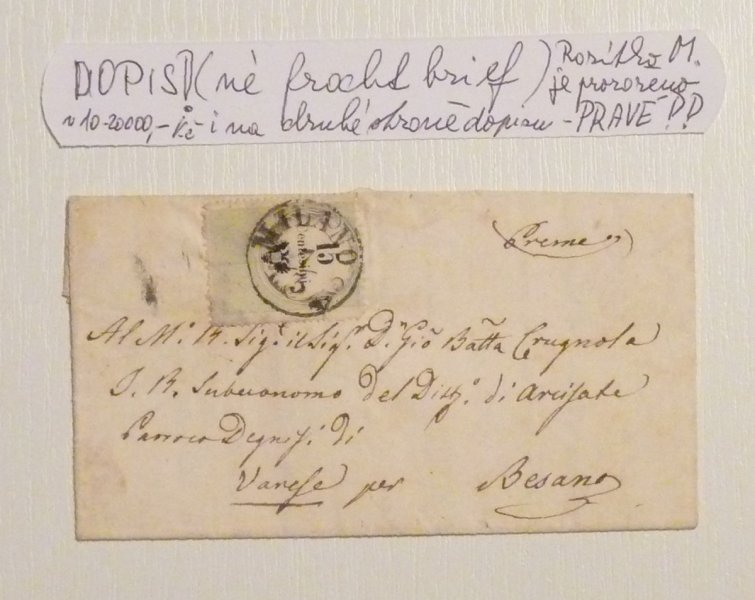 DOPIS (né frachtbrief) Razítko M.
je prozořeno
v 10-20000,- Kč i na druhé straně dopisu - PRAVÉ P.P
MILANO
15
Preme
Al M. R. Sigr. il Sigr. Dn Gio Batta Crugnola
I. R. Subeconomo del Distto. di Arcisate
Parroco Degnisso. di
Varese per Besano